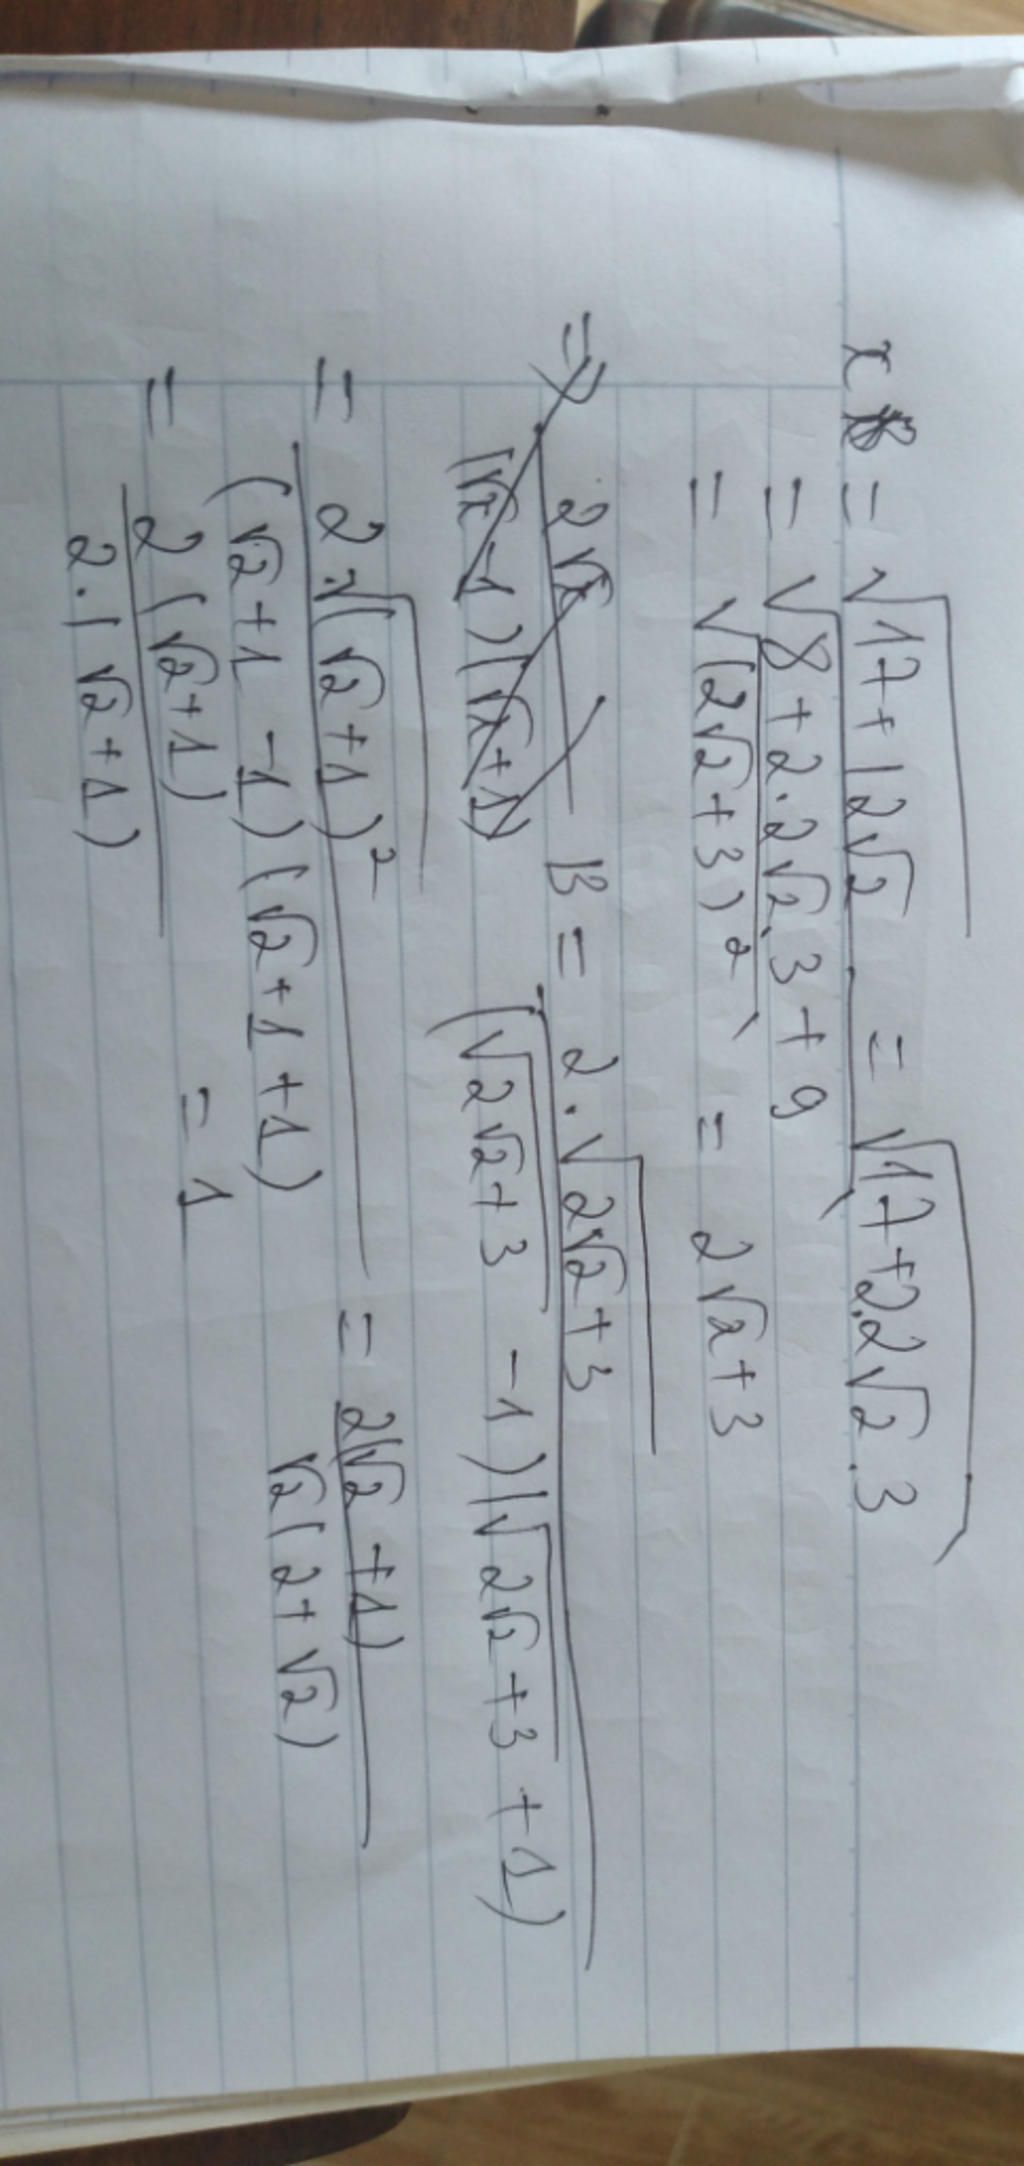 x = √(17+12√2) = √(17+2.2√2.3)
= √(8+2.2√2.3+9)
= √((2√2+3)²) = 2√2+3
=> (2√x)/((√x-1)(√x+1)) B = (2.√(2√2+3))/((√(2√2+3) -1)(√(2√2+3) +1))
= (2.√((√2+1)²))/((√2+1 -1)(√2+1+1)) = (2(√2+1))/(√2(2+√2))
= (2(√2+1))/(2.(√2+1)) = 1